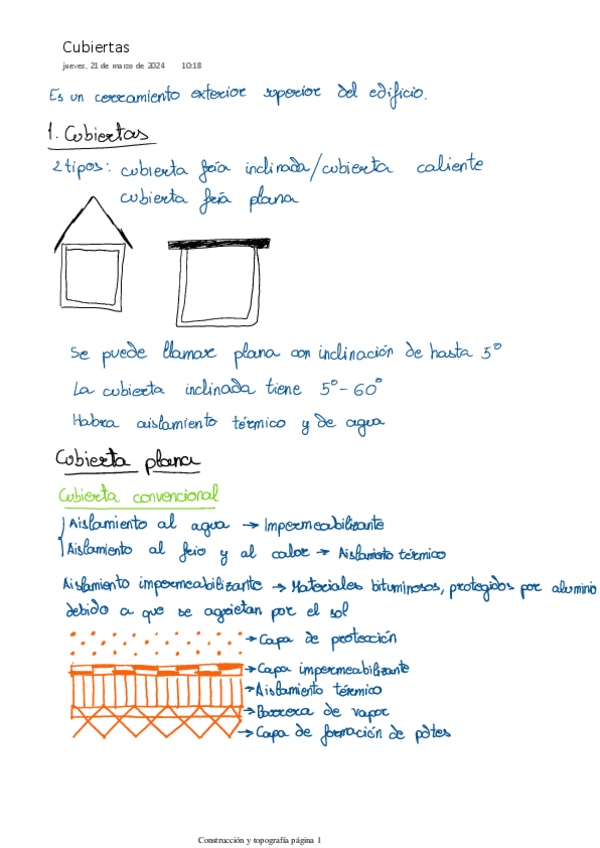 Cubiertas
jueves, 21 de marzo de 2024 10:18
Es un cerramiento exterior superior del edificio.
1. Cubiertas
2 tipos: cubierta fría inclinada/cubierta caliente
cubierta fría plana
Se puede llamar plana con inclinación de hasta 5°
La cubierta inclinada tiene 5°-60°
Habra aislamiento térmico y de agua
Cubierta plana
Cubierta convencional
Aislamiento al agua → Impermeabilizante
Aislamiento al frio y al calor → Aislamiento térmico
Aislamiento impermeabilizante → Materiales bituminosos, protegidos por aluminio
debido a que se agrietan por el sol
→ Capa de protección
→ Capa impermeabilizante
→ Aislamiento térmico
→ Barrera de vapor
→ Capa de formación de pdtes
Construcción y topografía página 1